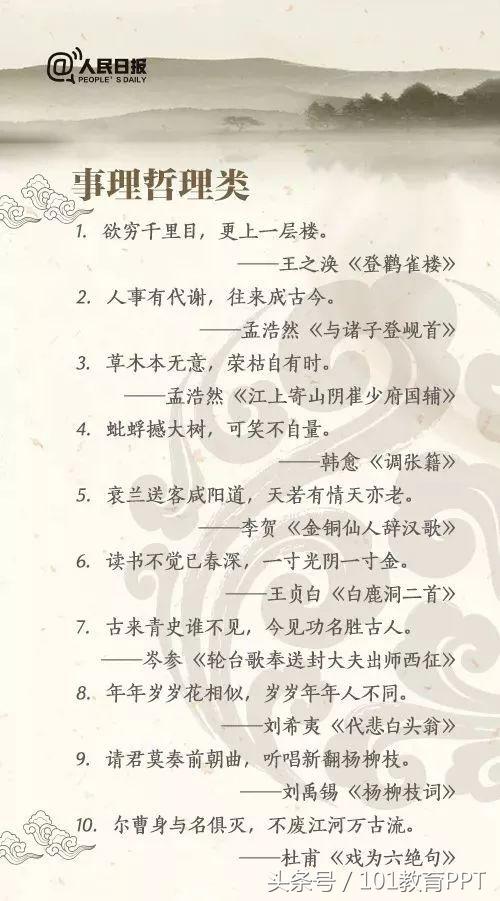 @人民日报
PEOPLE'S DAILY
事理哲理类
1. 欲穷千里目，更上一层楼。
——王之涣《登鹳雀楼》
2. 人事有代谢，往来成古今。
——孟浩然《与诸子登岘首》
3. 草木本无意，荣枯自有时。
——孟浩然《江上寄山阴崔少府国辅》
4. 蚍蜉撼大树，可笑不自量。
——韩愈《调张籍》
5. 衰兰送客咸阳道，天若有情天亦老。
——李贺《金铜仙人辞汉歌》
6. 读书不觉已春深，一寸光阴一寸金。
——王贞白《白鹿洞二首》
7. 古来青史谁不见，今见功名胜古人。
——岑参《轮台歌奉送封大夫出师西征》
8. 年年岁岁花相似，岁岁年年人不同。
——刘希夷《代悲白头翁》
9. 请君莫奏前朝曲，听唱新翻杨柳枝。
——刘禹锡《杨柳枝词》
10. 尔曹身与名俱灭，不废江河万古流。
——杜甫《戏为六绝句》
头条号 / 101教育PPT